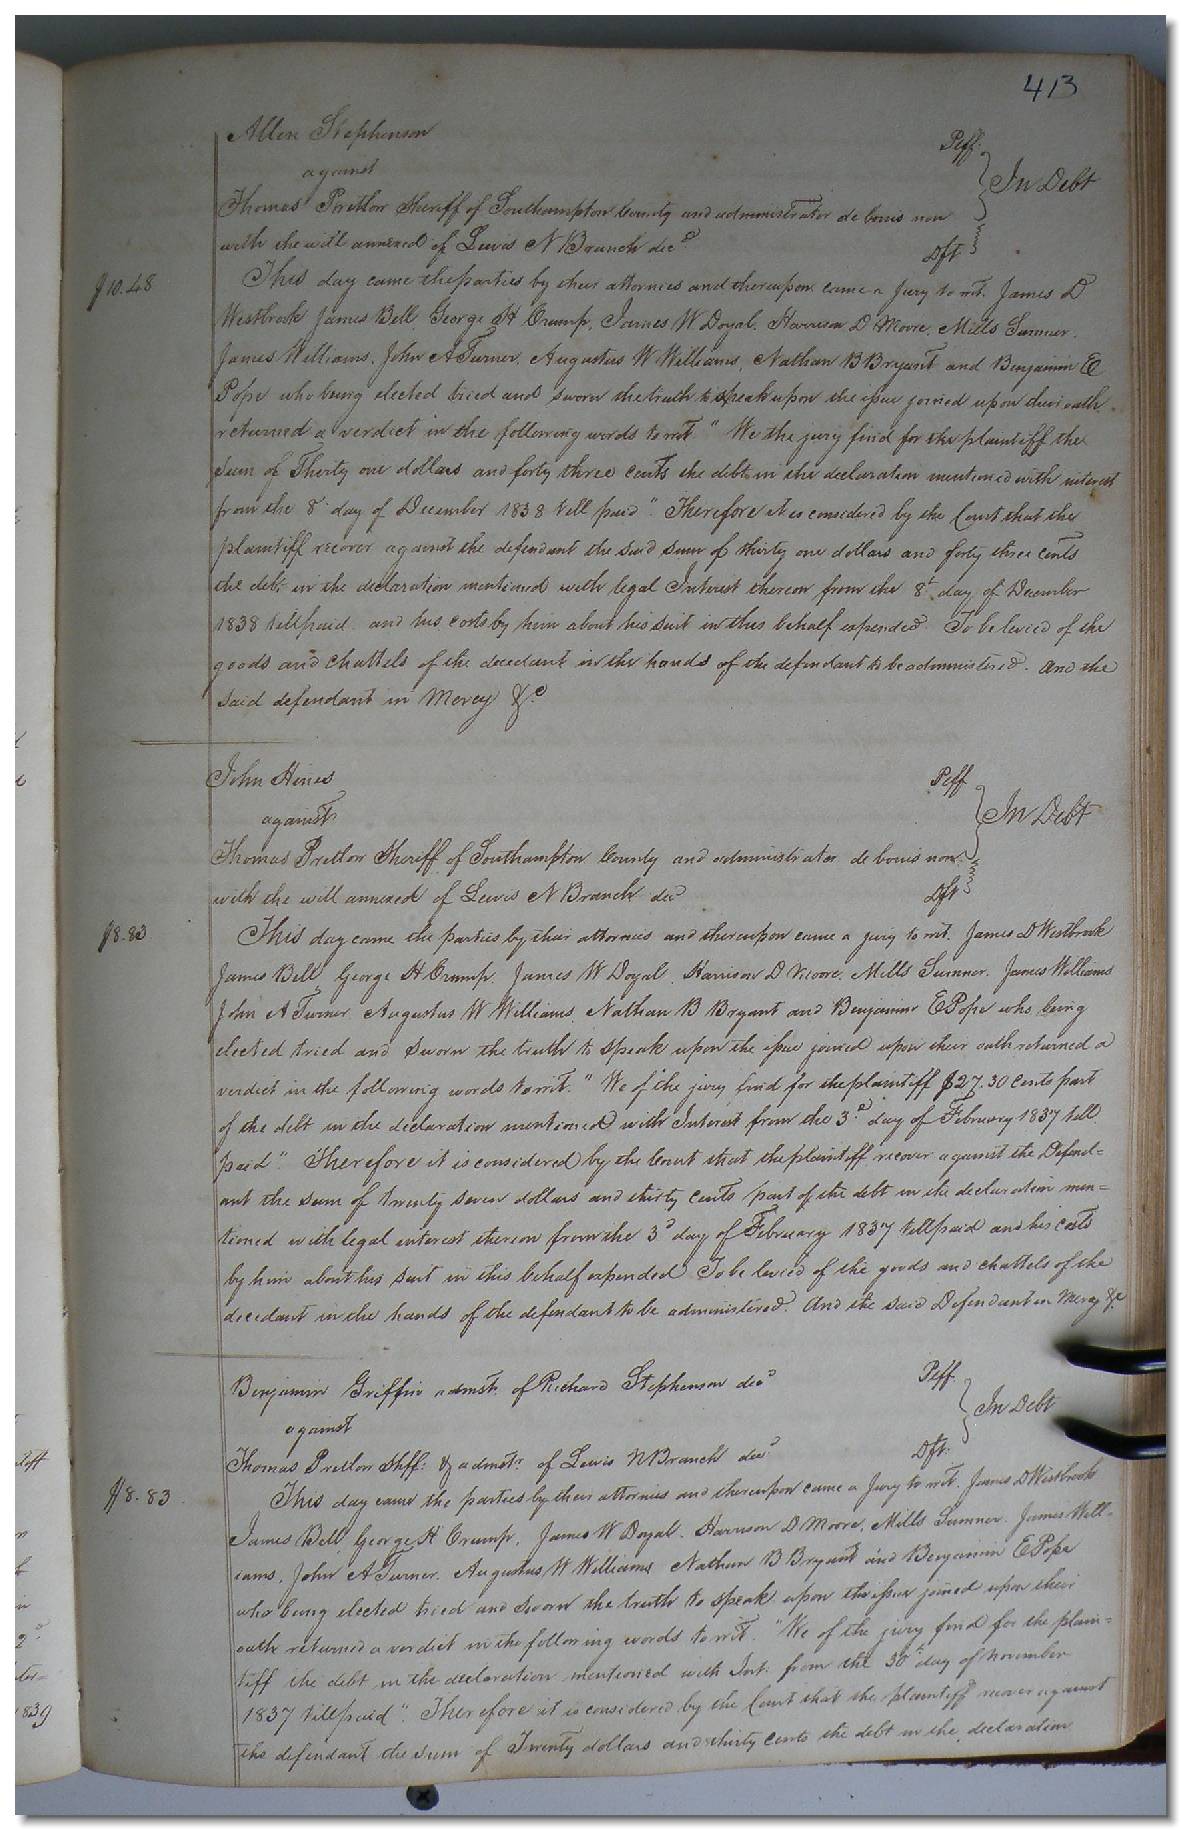 413
Allen Stephenson Plff.
against In Debt
Thomas Pretlow Sheriff of Southampton County and administrator de bonis non
with the will annexed of Lewis N Branch decd Dft
$10.48
This day came the parties by their attornies and thereupon came a Jury to wit. James D
Westbrook James Bell, George H Crump, James W Doyal, Harrison D Moore, Mills Sumner,
James Williams, John A Turner, Augustus W Williams, Nathan B Bryant and Benjamin E
Pope who being elected tried and sworn the truth to speak upon the issue joined upon their oath
returned a verdict in the following words to wit "We the jury find for the plaintiff the
sum of Thirty one dollars and forty three cents the debt in the declaration mentioned with interest
from the 8t day of December 1838 till paid". Therefore it is considered by the Court that the
plaintiff recover against the defendant the said sum of thirty one dollars and forty three cents
the debt in the declaration mentioned with legal Interest thereon from the 8t day of December
1838 till paid and his costs by him about his suit in this behalf expended. To be levied of the
goods and chattels of the decedant in the hands of the defendant to be administered. And the
said defendant in Mercy &c
John Hines Plff
against In Debt
Thomas Pretlow Sheriff of Southampton County and administrator de bonis non
with the will annexed of Lewis N Branch decd Dft
$8.83
This day came the parties by their attornies and thereupon came a jury to wit. James D Westbrook
James Bell, George H Crump, James W Doyal, Harrison D Moore, Mills Sumner, James Williams
John A Turner, Augustus W Williams, Nathan B Bryant and Benjamin E Pope who being
elected tried and sworn the truth to speak upon the issue joined upon their oath returned a
verdict in the following words to wit. "We of the jury find for the plaintiff $27.30 cents part
of the debt in the declaration mentioned with Interest from the 3d day of February 1837 till
paid". Therefore it is considered by the Court that the plaintiff recover against the Defend=
ant the sum of twenty seven dollars and thirty cents part of the debt in the declaration men=
tioned with legal interest thereon from the 3d day of February 1837 till paid and his costs
by him about his suit in this behalf expended To be levied of the goods and chattels of the
decedant in the hands of the defendant to be administered. And the said Defendant in Mercy &c
Benjamin Griffin admst. of Richard Stephenson decd Plff.
against In Debt
Thomas Pretlow Shff: & admstr of Lewis N Branch decd Dft.
$8.83
This day came the parties by their attornies and thereupon came a Jury to wit. James D Westbrook
James Bell, George H Crump, James W Doyal, Harrison D Moore, Mills Sumner, James Will=
iams, John A Turner, Augustus W Williams Nathan B Bryant and Benjamin E Pope
who being elected tried and sworn the truth to speak upon the issue joined upon their
oath returned a verdict in the following words to wit. "We of the jury find for the plain=
tiff the debt in the declaration mentioned with Int. from the 30t day of November
1837 till paid". Therefore it is considered by the Court that the plaintiff recover against
the defendant the sum of Twenty dollars and thirty cents the debt in the declaration
1839